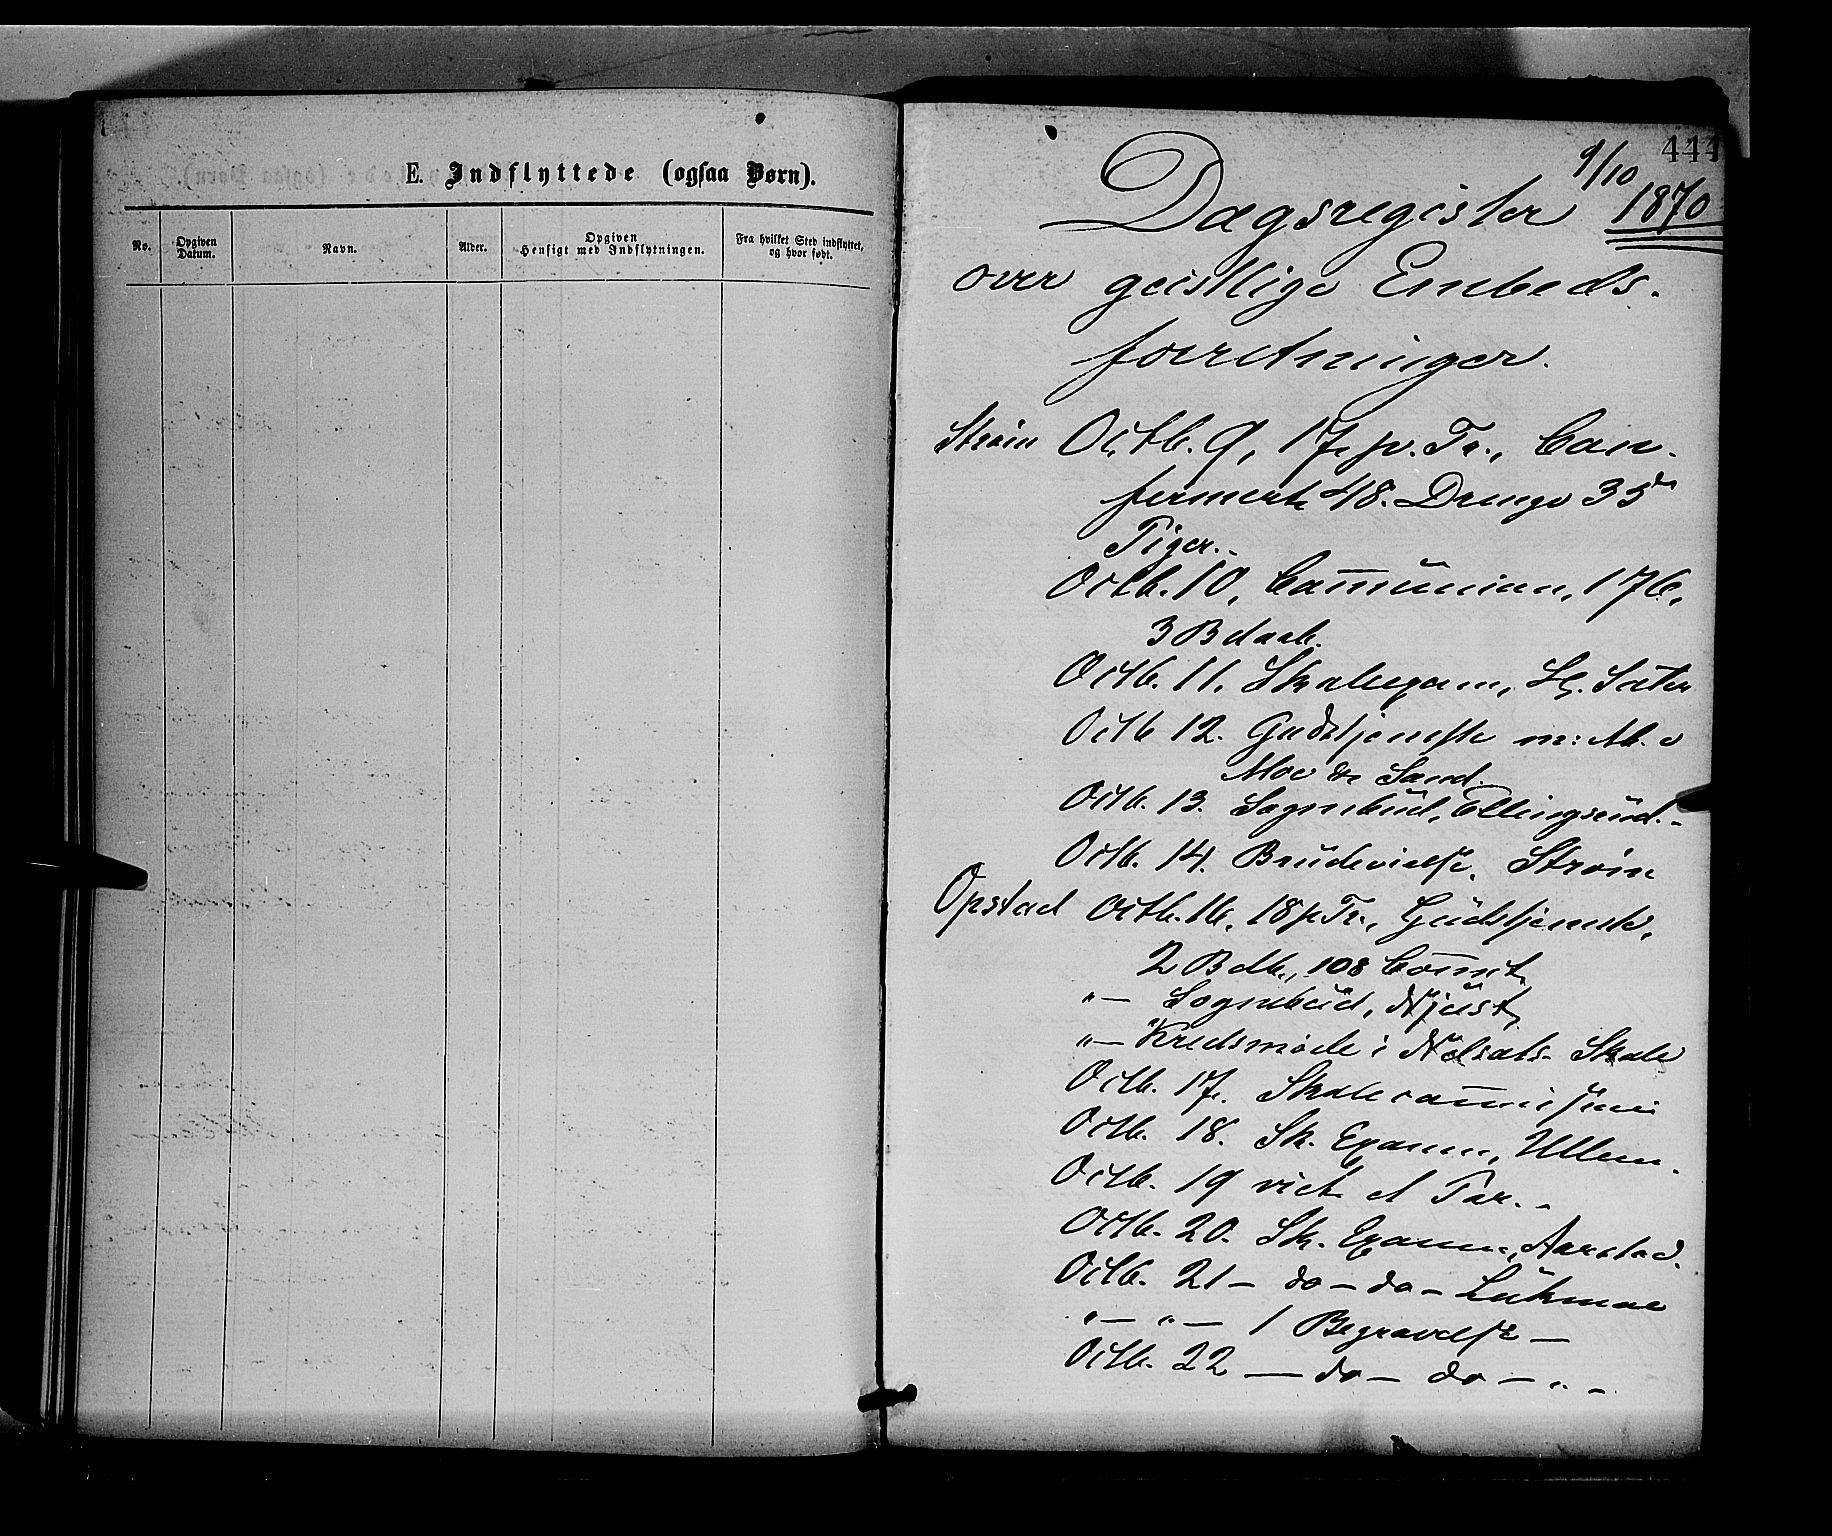 E. Indflyttede (ogsaa Børn).
No.
Opgiven Datum.
Navn.
Alder.
Opgiven Hensigt med Indflytningen.
Fra hvilket Sted indflyttet, og hvor født.
444
9/10
Dagsregister 1870
over geistlige Embeds-
forretninger.
Strøm Octb. 9, 17 p. Tr., Con-
firmert 48 Drenge 35
Piger.
Octb. 10, Communion, 176,
3 B daab.
Octb. 11. Skoleexam, Sæter
Octb 12. Gudstjeneste m: Ab. i
Moe & Sand.
Octb. 13. Sognebud, Ellingsrud.
Octb. 14. Brudevielse, Strøm
Opstad Octb. 16, 18 p Tr., Gudstjeneste,
2 B db., 108 Comt.
"— Sognebud, Njust,
"— Kredsmøde i Skole
Octb. 17. Skolecommission
Octb. 18. Sk. Exam, Ullern.
Octb. 19 viet et Par.
Octb. 20. Sk. Exam, Aarstad.
Octb. 21 — do — do — Lukmoe
"— "— 1 Begravelse —
Octb. 22 — do — do — " -